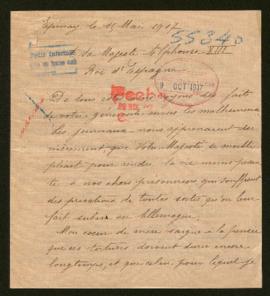 Epinay le 15 Mai 1917
55340
A Sa Majesté Alphonse XIII
Roi d'Espagne
9 OCT 1917
De tous
de votre générosité envers les malheureux
Les journaux nous apprenaient der-
nièrement que Votre Majesté se multi-
pliait pour rendre la vie moins pénible
à nos chers prisonniers qui souffrent
des privations de toutes sortes qu'on leur
fait subir en Allemagne.
Mon cœur de mère saigne à la pensée
que ces tortures doivent durer encore
longtemps, et que celui pour lequel je